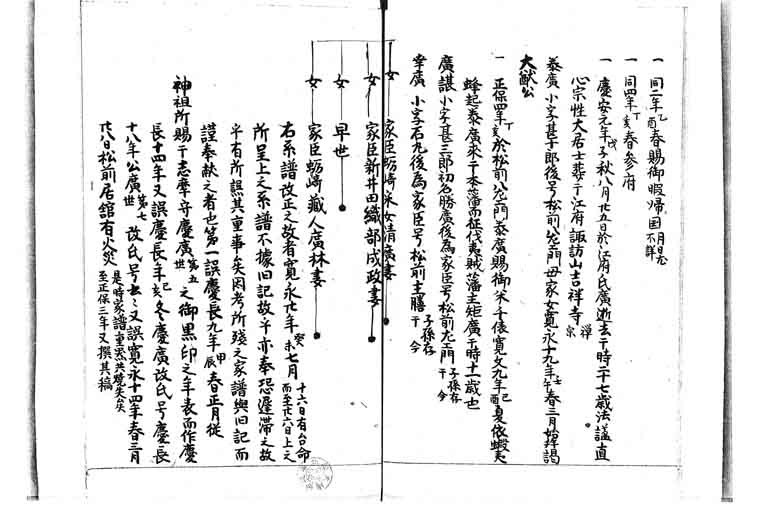 一 同二年乙酉春賜御暇帰国月日尤不詳
一 同四年丁亥春参府
一 慶安元年戊子秋八月廿五日於江府氏廣逝去于時二十七歳法諡直
心宗性大居士葬于江府諏訪山吉祥寺禅宗
泰廣 小字甚十郎後号松前八左衛門母家女寛永十九年壬午春三月始拝謁
大猷公
一 正保四年丁亥於松前八左衛門泰廣賜御米千俵寛文九年己酉夏依蝦夷
蜂起泰廣来于本藩而征伐夷賊藩主矩廣于時十一歳也
廣諶 小字甚三郎初名勝廣後為家臣号松前左衛門子孫存于今
幸廣 小字石丸後為家臣号松前主膳子孫存于今
女 家臣蛎崎采女情廣妻
女 家臣新井田織部成政妻
女 早世
女 家臣蛎崎蔵人廣林妻
右系譜改正之故者寛永廿年癸未七月十六日有台命而至廿六日上之
所呈上之系譜不據旧記故乎亦奉恐遅滞之故
乎有所誤其重事矣因考所残之家譜與旧記而
謹奉献之者也第一誤慶長九年甲辰春正月従
神祖所賜于志摩守慶廣第五世之御黒印之年表而作慶
長十四年又誤慶長年己亥冬慶廣改氏号慶長
十八年公廣第七世改氏号云々又誤寛永十四年春三月
廿八日松前居舘有火災是時家譜重器共焼失矣至正保三年又撰其稿